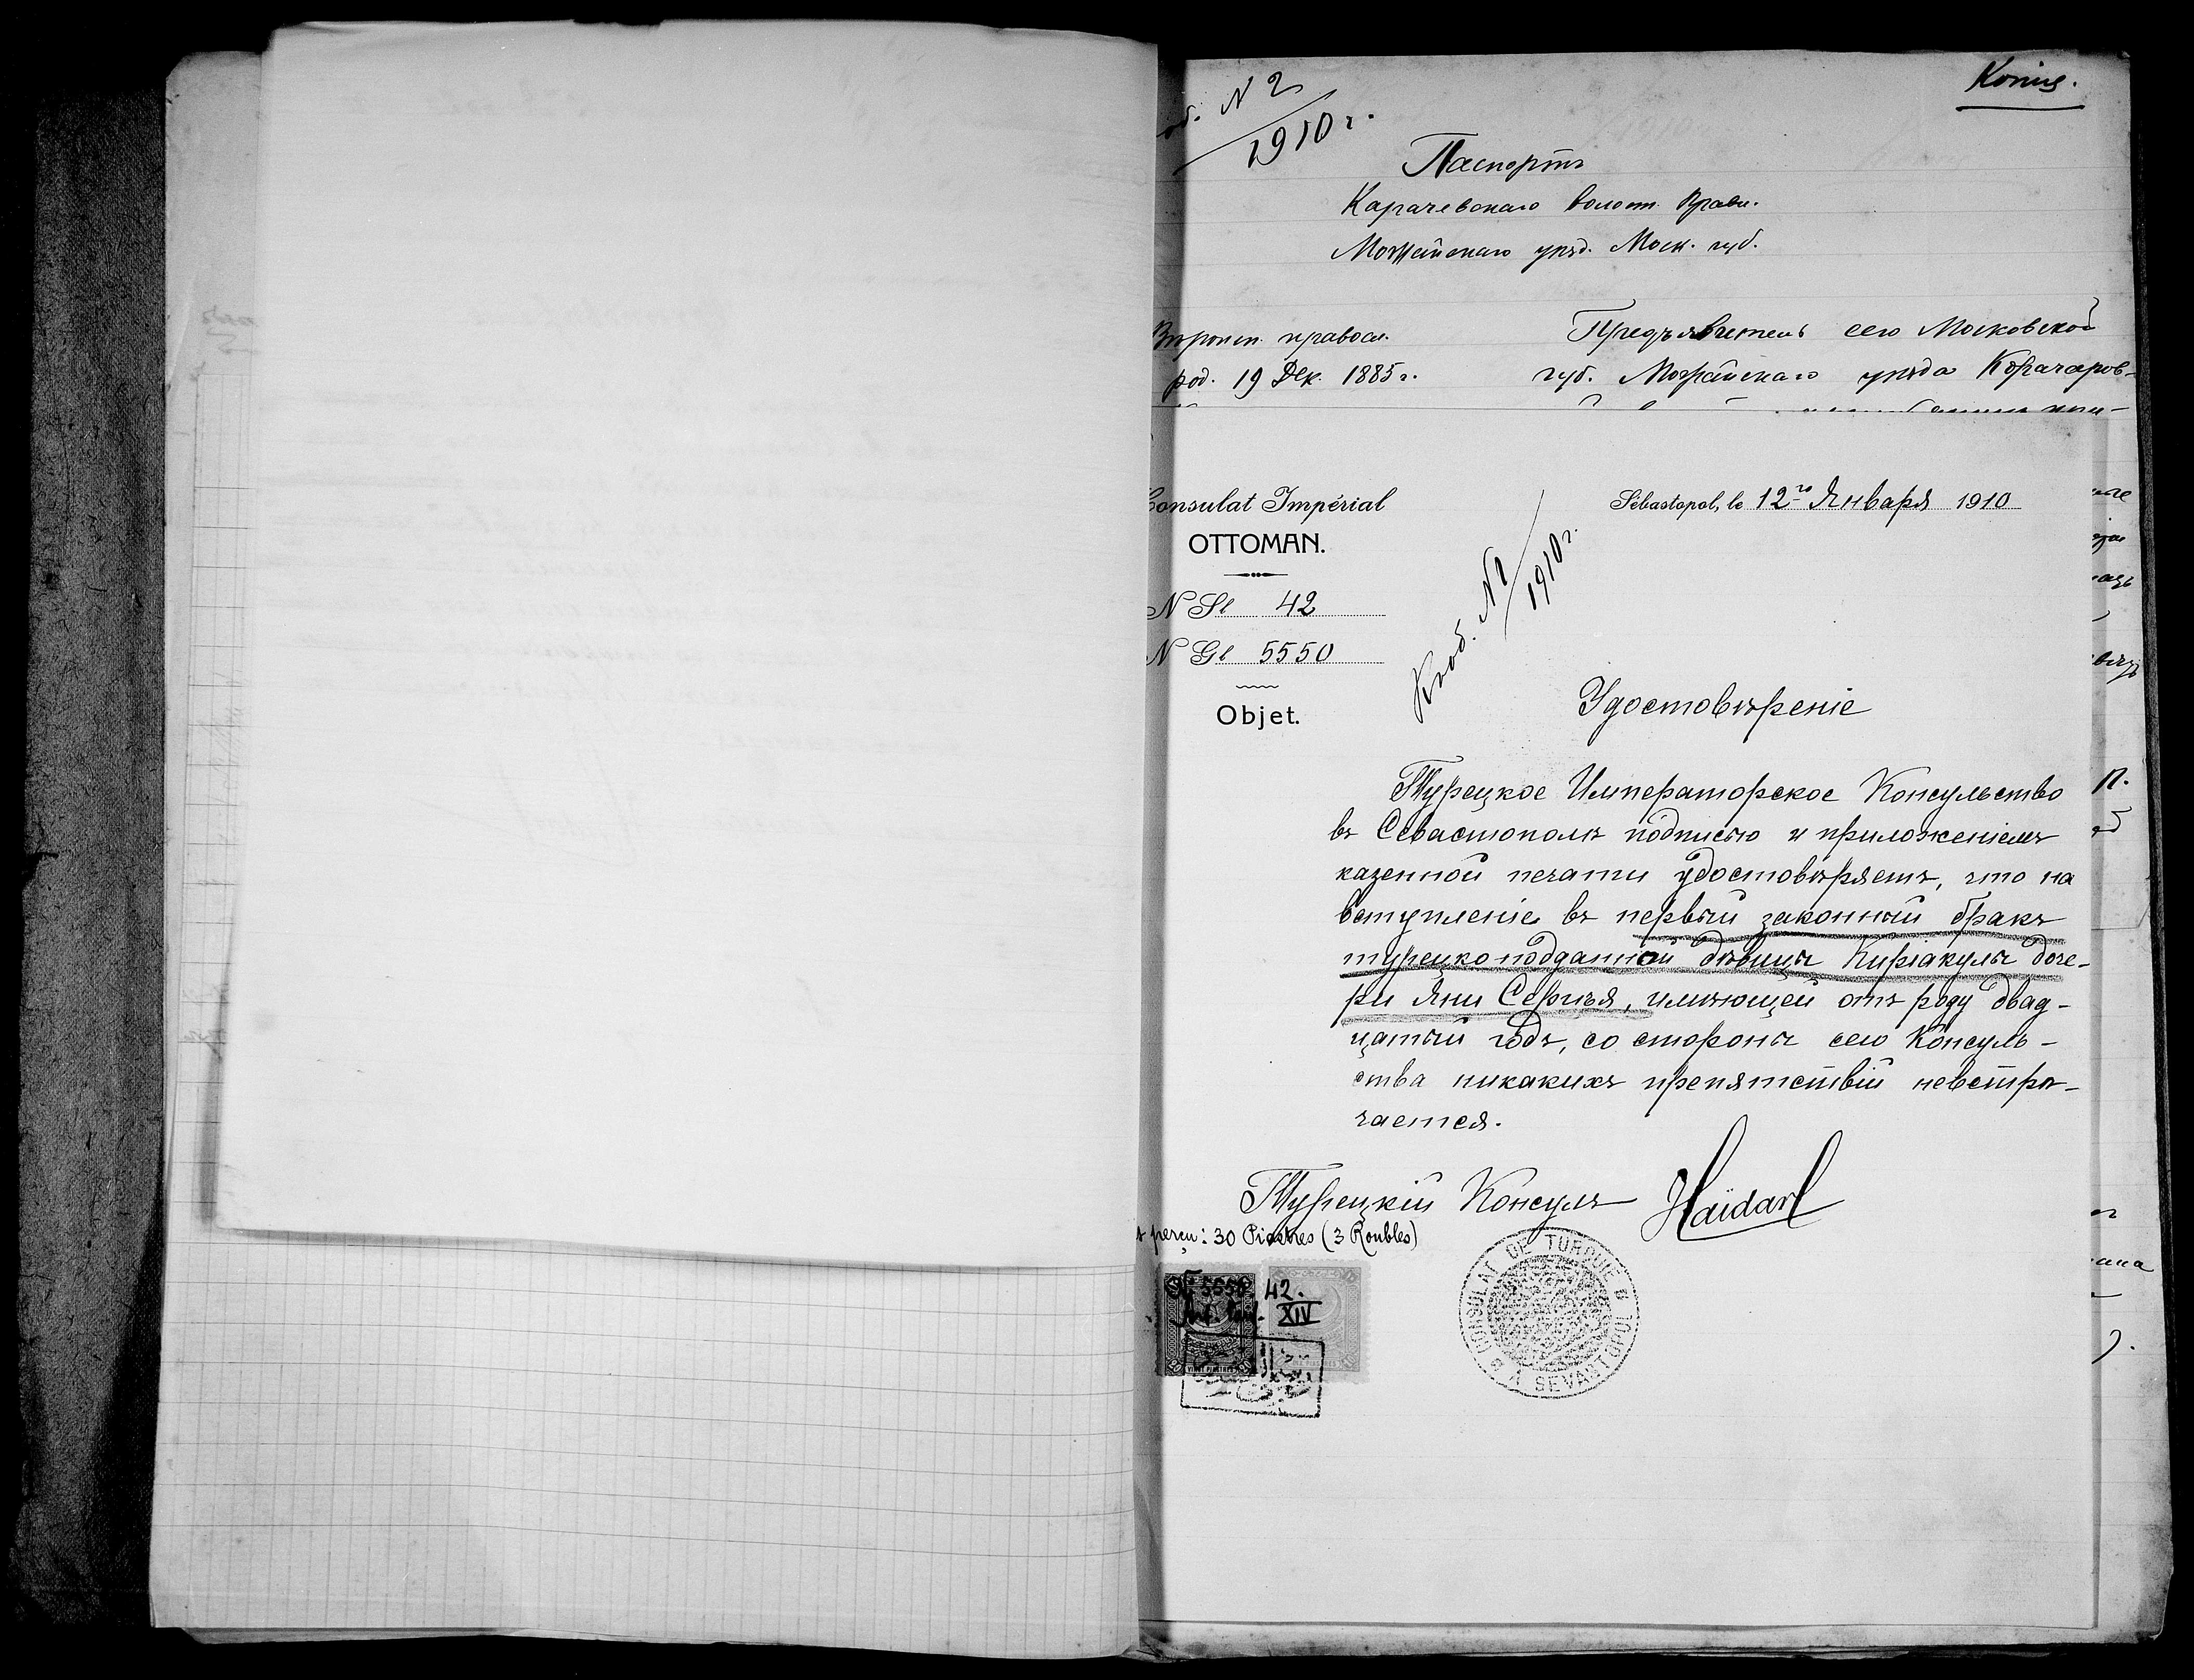 об. N 2
1910 г.
Копія.
Паспортъ
Карачевскаго волост. Правл.
Можайскаго уѣзд. Моск. губ.
Вѣроисп. правосл.
род. 19 Дек. 1885 г.
Предъявитель сего Московской
губ. Можайскаго уѣзда Карачаров-
Consulat Impérial
OTTOMAN.
N Sl 42
N Gl 5550
Objet.
Sébastopol, le 12го Января 1910
Къ об. N 2
1910 г.
Удостовѣреніе
Турецкое Императорское Консульство
въ Севастополѣ подписью и приложеніемъ
казенной печати удостовѣряетъ, что на
вступленіе въ первый законный бракъ
турецкоподданной дѣвицы Киріакулы доче-
ри Яни Сефилья, имѣющей отъ роду двад-
цатый годъ, со стороны сего Консуль-
ства никакихъ препятствій невстрѣ-
чается.
Турецкій Консулъ Haïdar
perçu: 30 Piastres (3 Roubles)
№ 5550 42.
Art. tarif. XIV
CONSULAT DE TURQUIE
A SEVASTOPOL